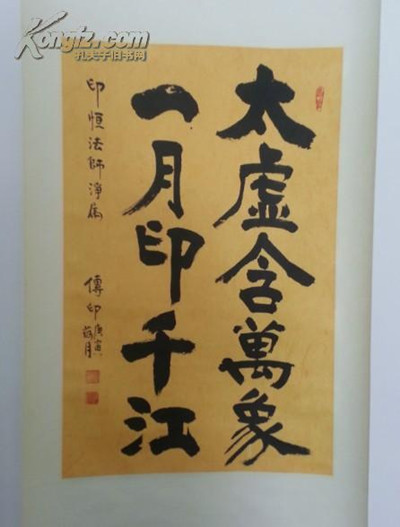 Kongfz.com
孔夫子旧书网
太虚含萬象
一月印千江
印恒法師淨屬
傳印
庚寅